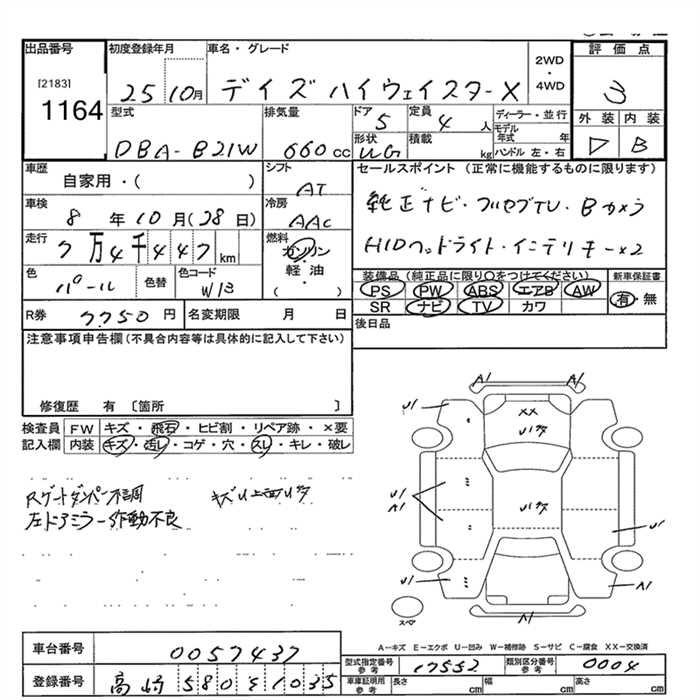 出品番号 初度登録年月 車名・グレード 2WD・4WD 評価点
[2183]
1164 25 10月 デイズ ハイウェイスターX 3
型式 排気量 ドア 定員 ディーラー・並行 外装 内装
DBA-B21W 660cc 5 4人 モデル年式 年 D B
形状 積載 ハンドル 左・右
UG kg
車歴 シフト セールスポイント (正常に機能するものに限ります)
自家用・( ) AT
車検 冷房 純正ナビ・フルセグTV・Bカメラ
8年10月(28日) AAC
走行 燃料 HIDヘッドライト・インテリキー×2
7万4千447km ガソリン
軽油
・
( )
色 色替 色コード 装備品(純正品に限り○をつけてください) 新車保証書
パール W13 PS PW ABS エアB AW 有・無
R券 7750円 名変期限 月 日 SR ナビ TV カワ
注意事項申告欄(不具合内容等は具体的に記入して下さい) 後日品
修復歴 有 〔箇所 〕
検査員 FW キズ・飛石・ヒビ割・リペア跡・×要
記入欄 内装 キズ・汚レ・コゲ・穴・スレ・キレ・破レ
Rゲートダンパー不調
左ドアミラー作動不良
A1 A1
U1 U1
XX
U1
U1
A1 U1
U1 A1
A1
スペア
A―キズ E―エクボ U―凹み W―補修跡 S―サビ C―腐食 XX―交換済
車台番号 0057437 型式指定番号 参考 17552 類別区分番号 参考 0004
登録番号 高崎 580 そ 1035 車庫証明用 参考 長さ cm 幅 cm 高さ cm